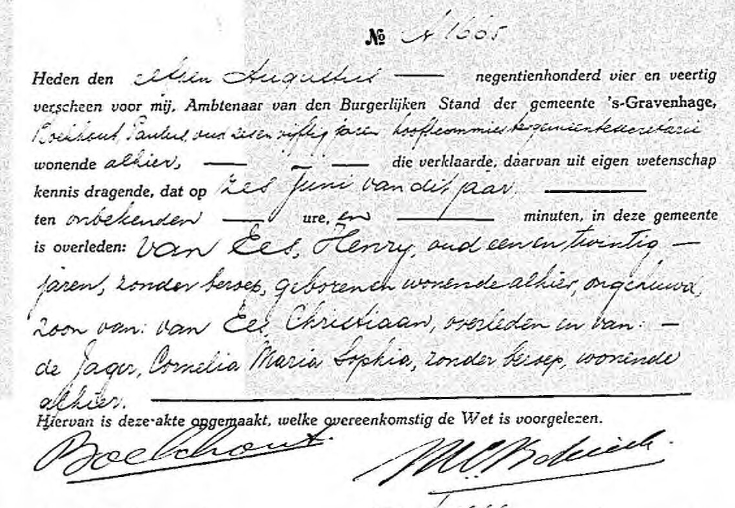 № A 1665
Heden den elfden Augustus negentienhonderd vier en veertig
verscheen voor mij, Ambtenaar van den Burgerlijken Stand der gemeente 's-Gravenhage,
Boekhout, Paulus, oud zes en vijftig jaren, hoofdcommies ter gemeentesecretarie
wonende alhier, die verklaarde, daarvan uit eigen wetenschap
kennis dragende, dat op zes Juni van dit jaar
ten onbekenden ure, en minuten, in deze gemeente
is overleden: van Ees, Henry, oud een en twintig
jaren, zonder beroep, geboren en wonende alhier, ongehuwd,
zoon van: van Ees, Christiaan, overleden en van:
de Jager, Cornelia Maria Sophia, zonder beroep, wonende
alhier.
Hiervan is deze akte opgemaakt, welke overeenkomstig de Wet is voorgelezen.
Boekhout.